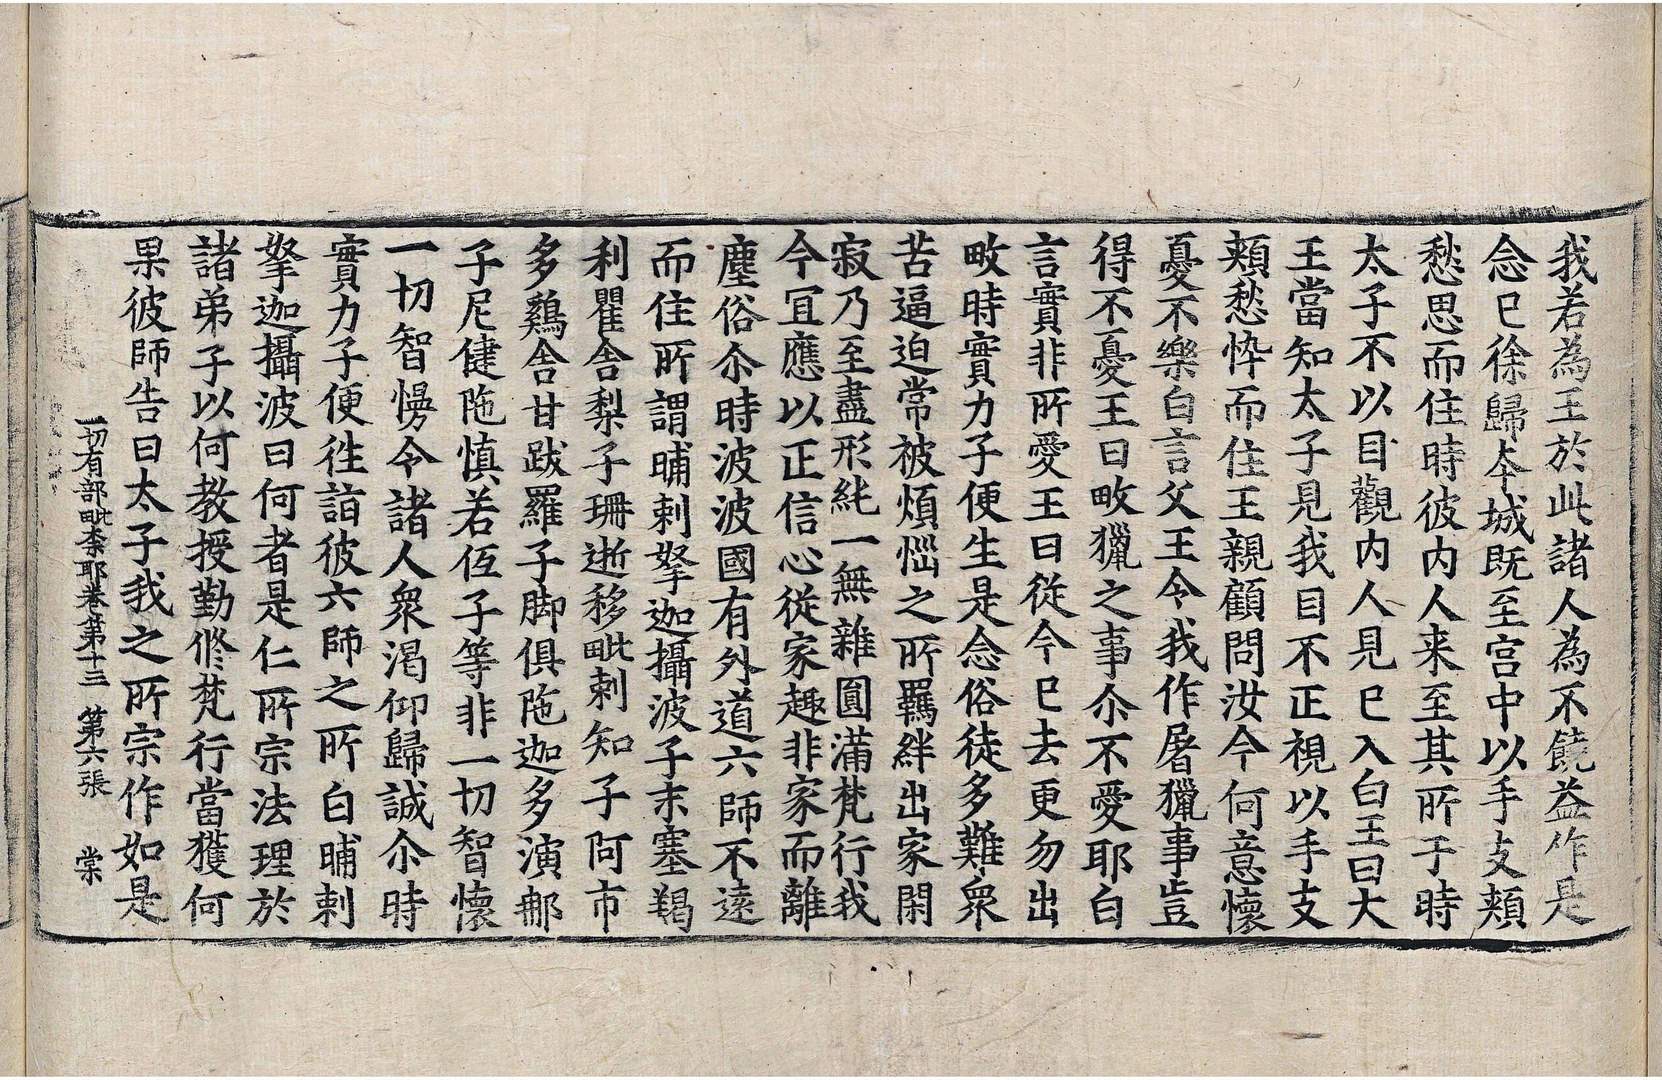 我若為王於此諸人為不饒益作是
念已徐歸本城既至宫中以手支頰
愁思而住時彼内人来至其所于時
太子不以目觀内人見已入白王曰大
王當知太子見我目不正視以手支
頰愁悴而住王親顧問汝今何意懷
憂不樂白言父王令我作屠獵事豈
得不憂王曰畋獵之事尒不愛耶白
言實非所愛王曰從今已去更勿出
畋時實力子便生是念俗徒多難衆
苦逼迫常被煩惱之所羈絆出家閑
寂乃至盡形純一無雜圓滿梵行我
今宜應以正信心從家趣非家而離
塵俗尒時波波國有外道六師不遠
而住所謂晡剌拏迦攝波子末塞羯
利瞿舍梨子珊逝移毗剌知子阿市
多鷄舍甘跋羅子脚俱陁迦多演那
子尼健陁慎若伍子等非一切智懷
一切智慢令諸人衆渴仰歸誠尒時
實力子便徃詣彼六師之所白晡剌
拏迦攝波曰何者是仁所宗法理於
諸弟子以何教授勤修梵行當獲何
果彼師告曰太子我之所宗作如是
一切有部毗柰耶卷第十三 第六張 棠